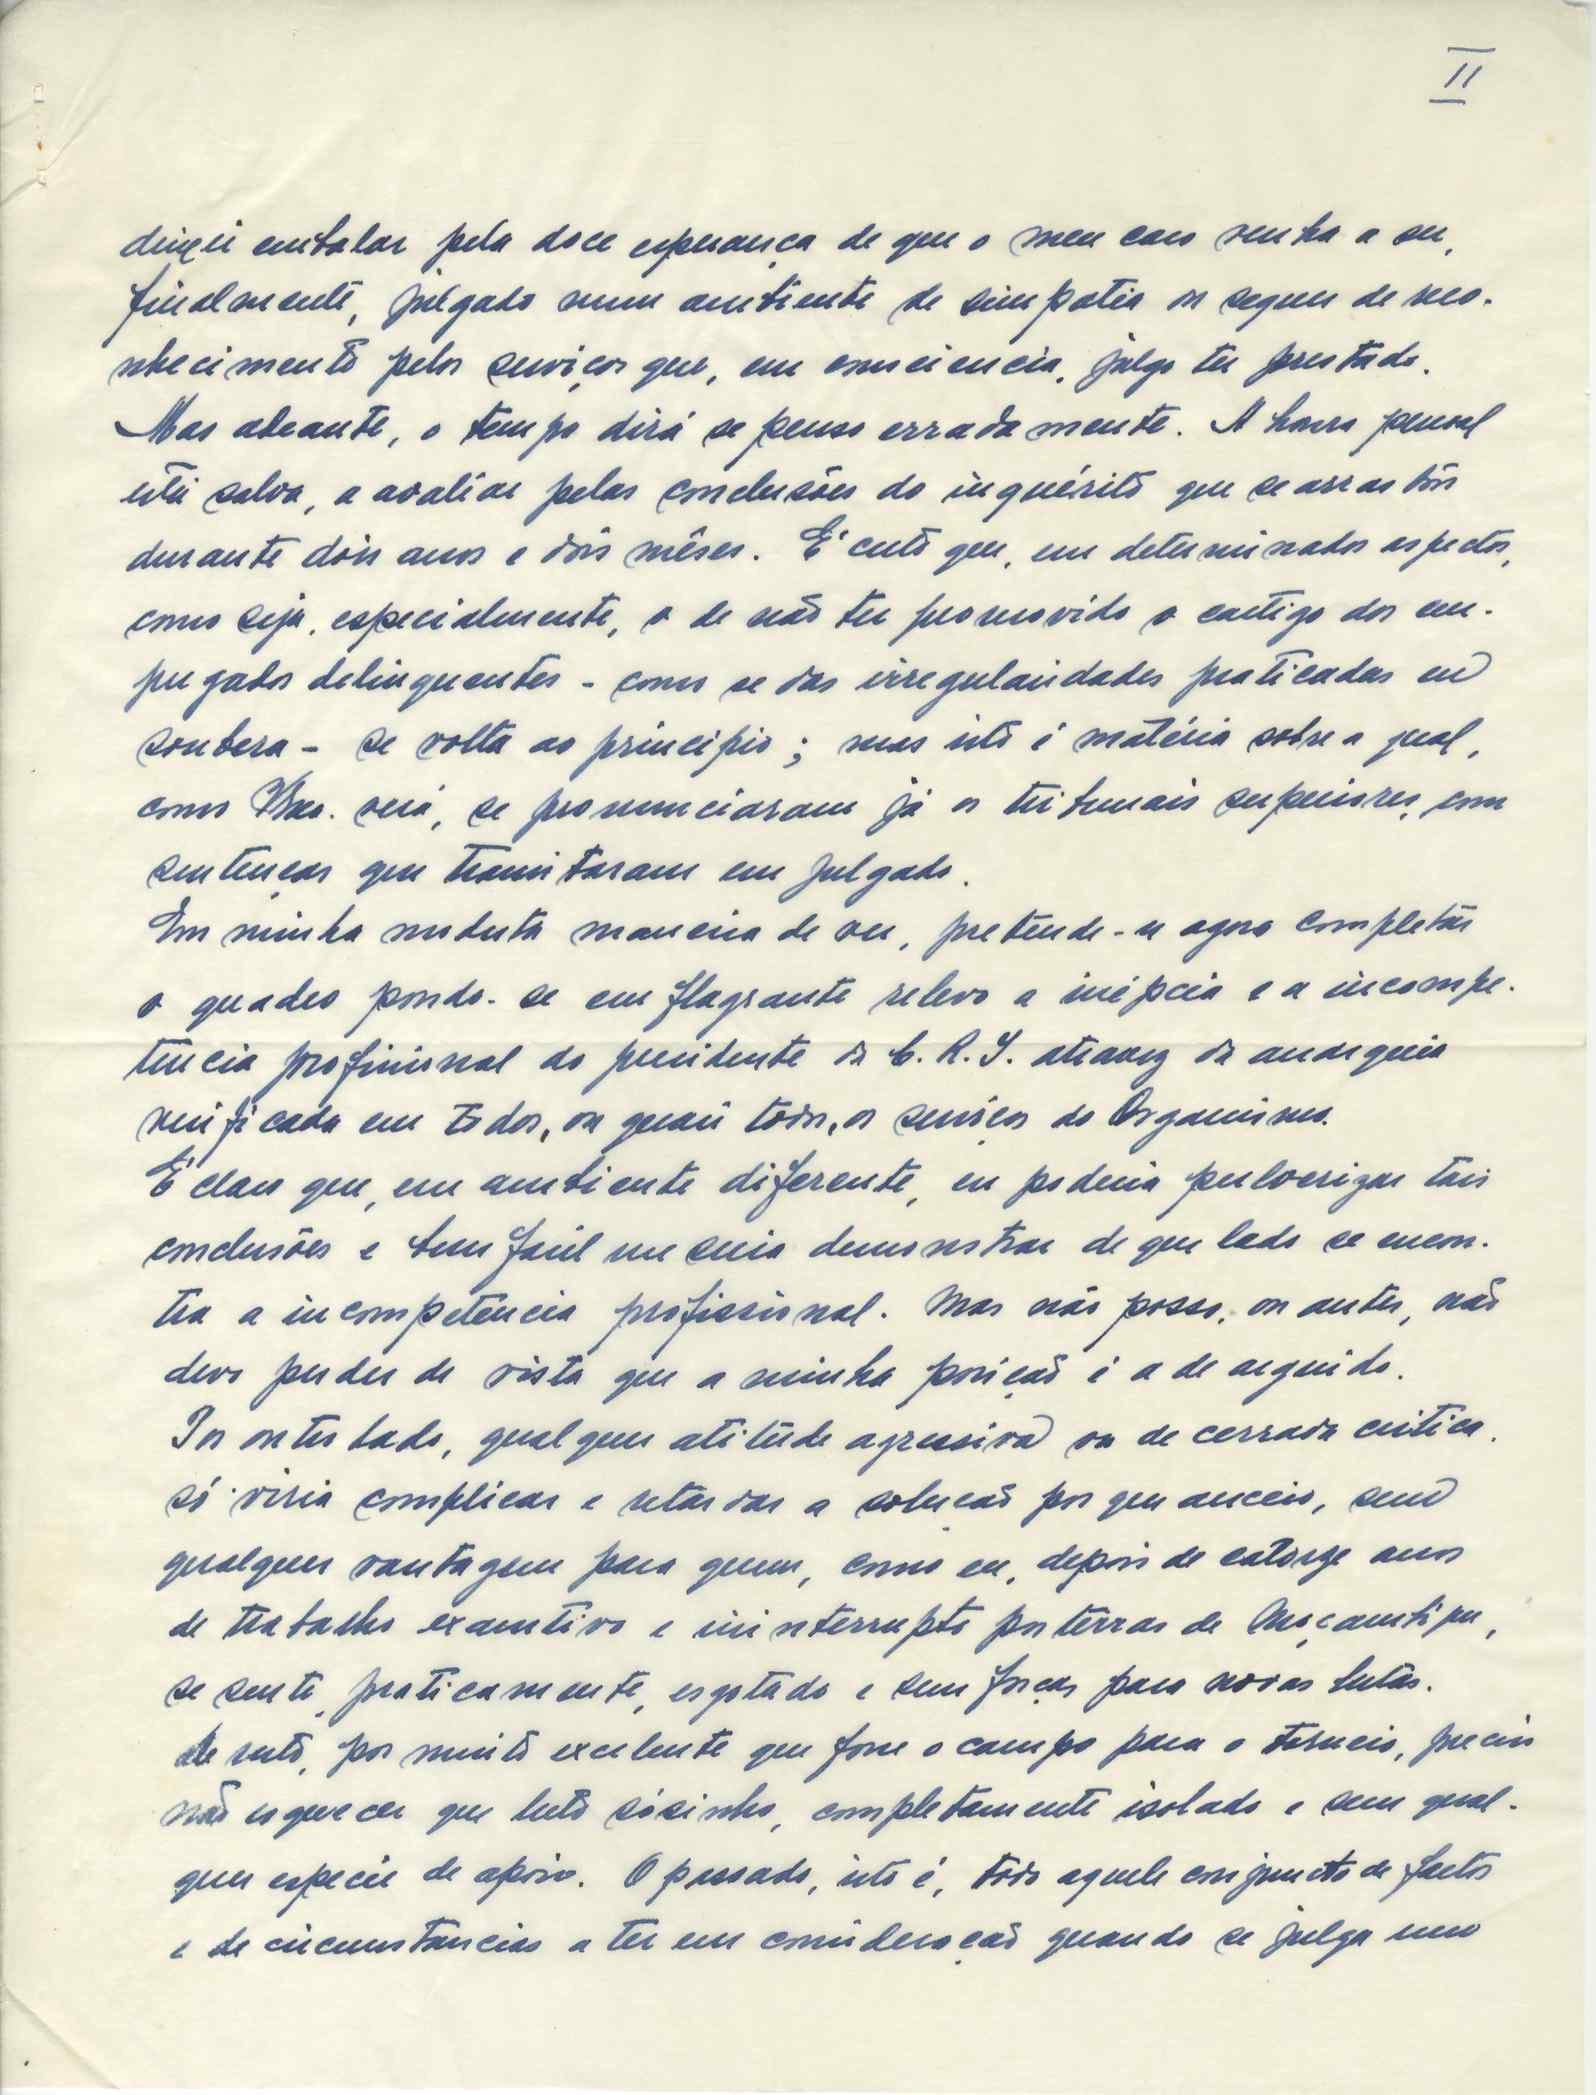 II
deixei embalar pela doce esperança de que o meu caso venha a ser,
finalmente, julgado num ambiente de simpatia ou sequer de reco-
nhecimento pelos serviços que, em consciencia, julgo ter prestado.
Mas adeante, o tempo dirá se penso erradamente. A honra pessoal
está salva, a avaliar pelas conclusões do inquérito que se arrastou
durante dois anos e dois mêses. É certo que, em determinados aspectos,
como seja, especialmente, o de não ter promovido o castigo dos em-
pregados delinquentes - como se das irregularidades praticadas eu
soubera - se volta ao principio; mas isto é matéria sobre a qual,
como Vexa. verá, se pronunciaram já os tribunais superiores, com
sentenças que transitaram em julgado.
Em minha modesta maneira de ver, pretende-se agora completar
o quadro pondo-se em flagrante relevo a inépcia e a incompe-
tência profissional do presidente da C. R. S. atravez da anarquia
verificada em todos, ou quasi todos, os serviços do Organismo.
É claro que, em ambiente diferente, eu poderia pulverizar tais
conclusões e bem facil me seria demonstrar de que lado se encon-
tra a incompetência profissional. Mas não posso, ou antes, não
devo perder de vista que a minha posição é a de arguido.
Por outro lado, qualquer atitude agressiva ou de cerrada critica,
só viria complicar e retardar a solução por que anceio, sem
qualquer vantagem para quem, como eu, depois de catorze anos
de trabalho exaustivo e ininterrupto por terras de Moçambique,
se sente, praticamente, esgotado e sem forças para novas lutas.
De resto, por muito excelente que fosse o campo para o torneio, preciso
não esquecer que luto sósinho, completamente isolado e sem qual-
quer especie de apoio. O passado, isto é, todo aquele conjuncto de factos
e de circumstancias a ter em consideração quando se julga um